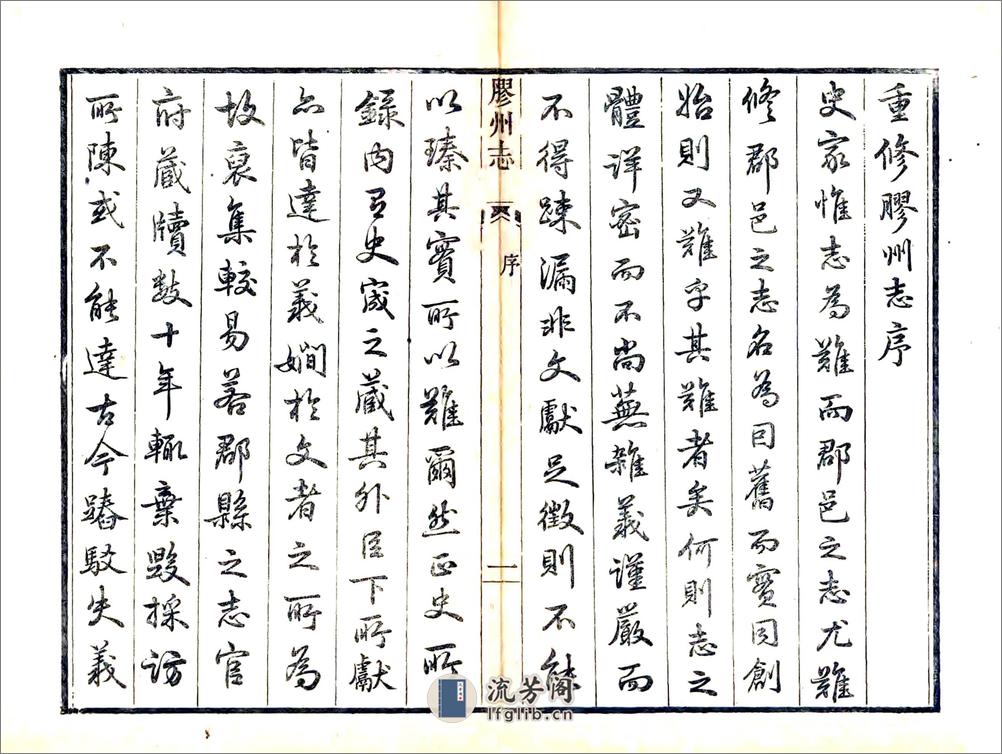 重修膠州志序
史家惟志為難而郡邑之志尤難
修郡邑之志名為因舊而實同創
始則又難乎其難者矣何則志之
體詳密而不尚蕪雜義謹嚴而
不得踈漏非文獻足徵則不能
膠州志
序
一
以臻其實所以難爾然正史所
錄內有史宬之藏其外臣下所獻
亦皆達於義嫺於文者之所為
故裒集較易若郡縣之志官
府藏牘數十年輒棄毀採訪
所陳或不能達古今踳駁失義
流芳阁
lfglib.cn